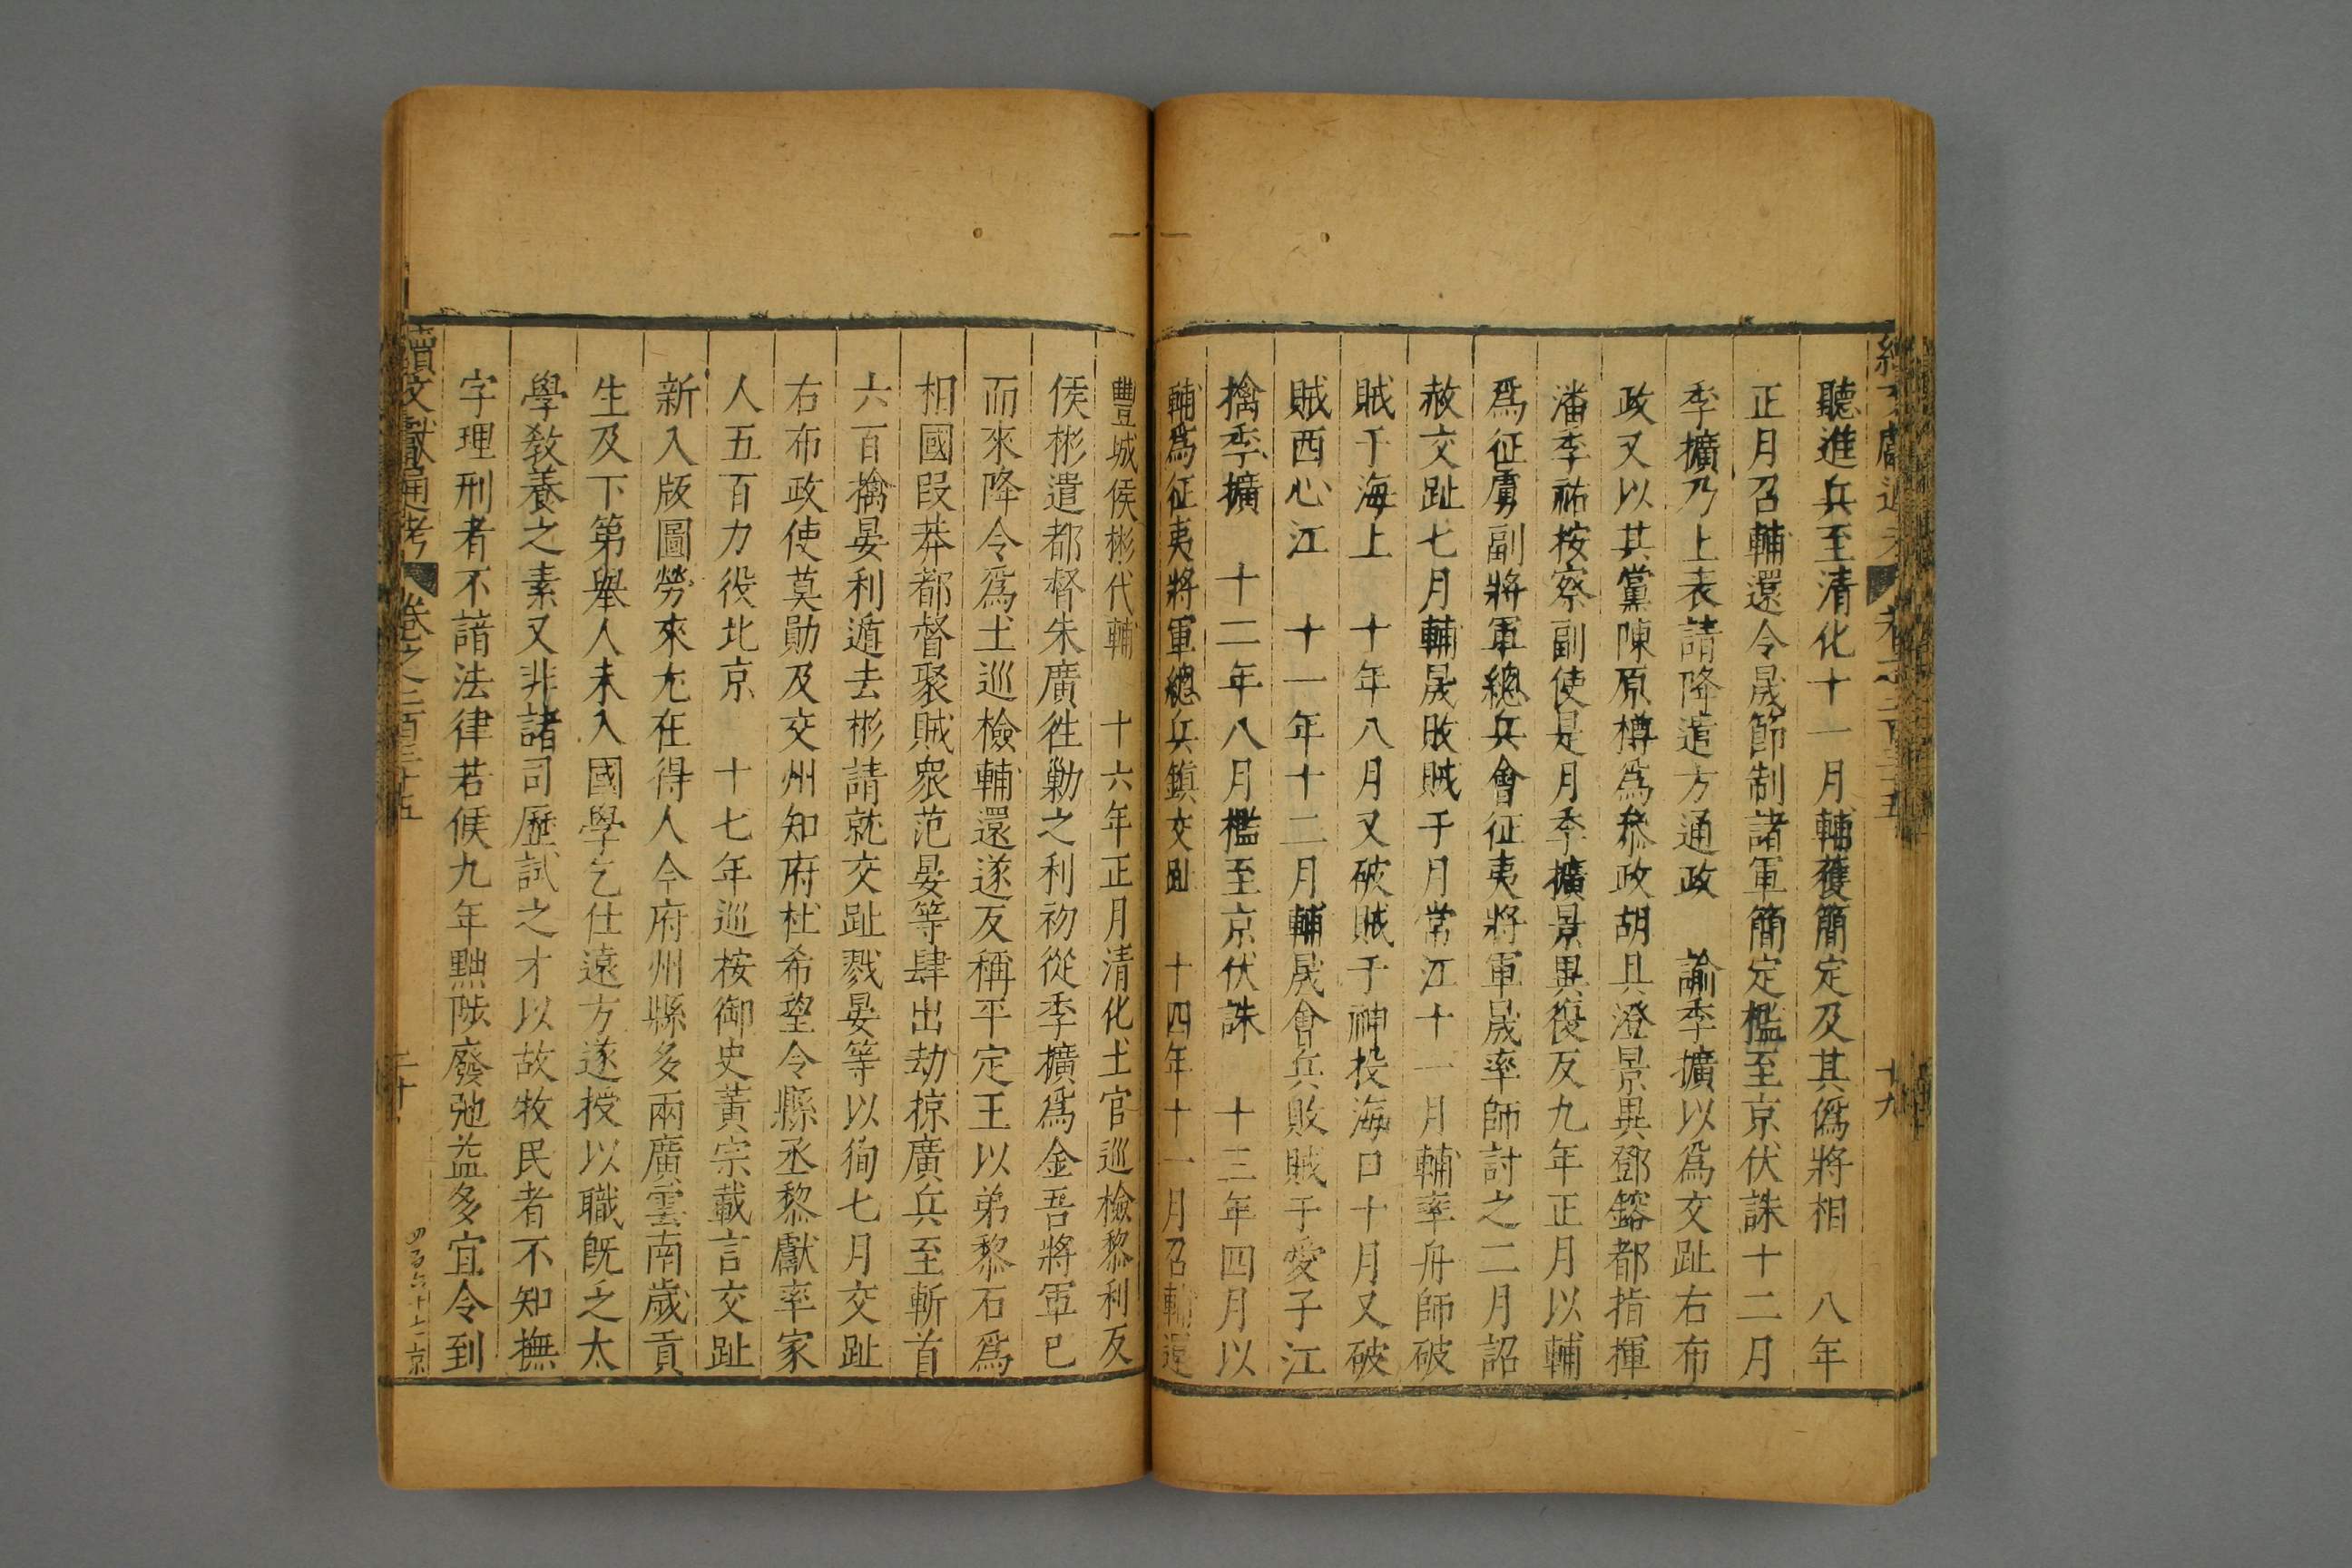 聽進兵至清化十一月輔獲簡定及其僞將相　八年
正月召輔還令晟節制諸軍簡定檻至京伏誅十二月
季擴乃上表請降遣方通政　諭季擴以爲交趾右布
政又以其黨陳原樽爲叅政胡具澄景異鄧鎔都指揮
潘季祐按察副使是月季擴景異復反九年正月以輔
爲征虜副將軍總兵會征夷將軍晟率師討之二月詔
赦交趾七月輔晟敗賊于月常江十一月輔率舟師破
賊于海上　十年八月又破賊于神投海口十月又破
賊西心江　十一年十二月輔晟會兵敗賊于愛子江
擒季擴　十二年八月檻至京伏誅　十三年四月以
輔爲征夷將軍總兵鎮交趾　十四年十一月召輔還
豐城侯彬代輔　十六年正月清化土官巡檢黎利反
侯彬遣都督朱廣徃勦之利初從季擴爲金吾將軍已
而來降令爲土巡檢輔還遂反稱平定王以弟黎石爲
相國段莽都督聚賊衆范晏等肆出劫掠廣兵至斬首
六百擒晏利遁去彬請就交趾戮晏等以徇七月交趾
右布政使莫勛及交州知府杜希望令縣丞黎獻率家
人五百力役北京　十七年巡按御史黃宗載言交趾
新入版圖勞來尤在得人今府州縣多兩廣雲南歲貢
生及下第舉人未入國學乞仕遠方遂授以職既乏太
學敎養之素又非諸司歷試之才以故牧民者不知撫
字理刑者不諳法律若候九年黜陟廢弛益多宜令到
續文獻通考　卷之二百三十五　二十